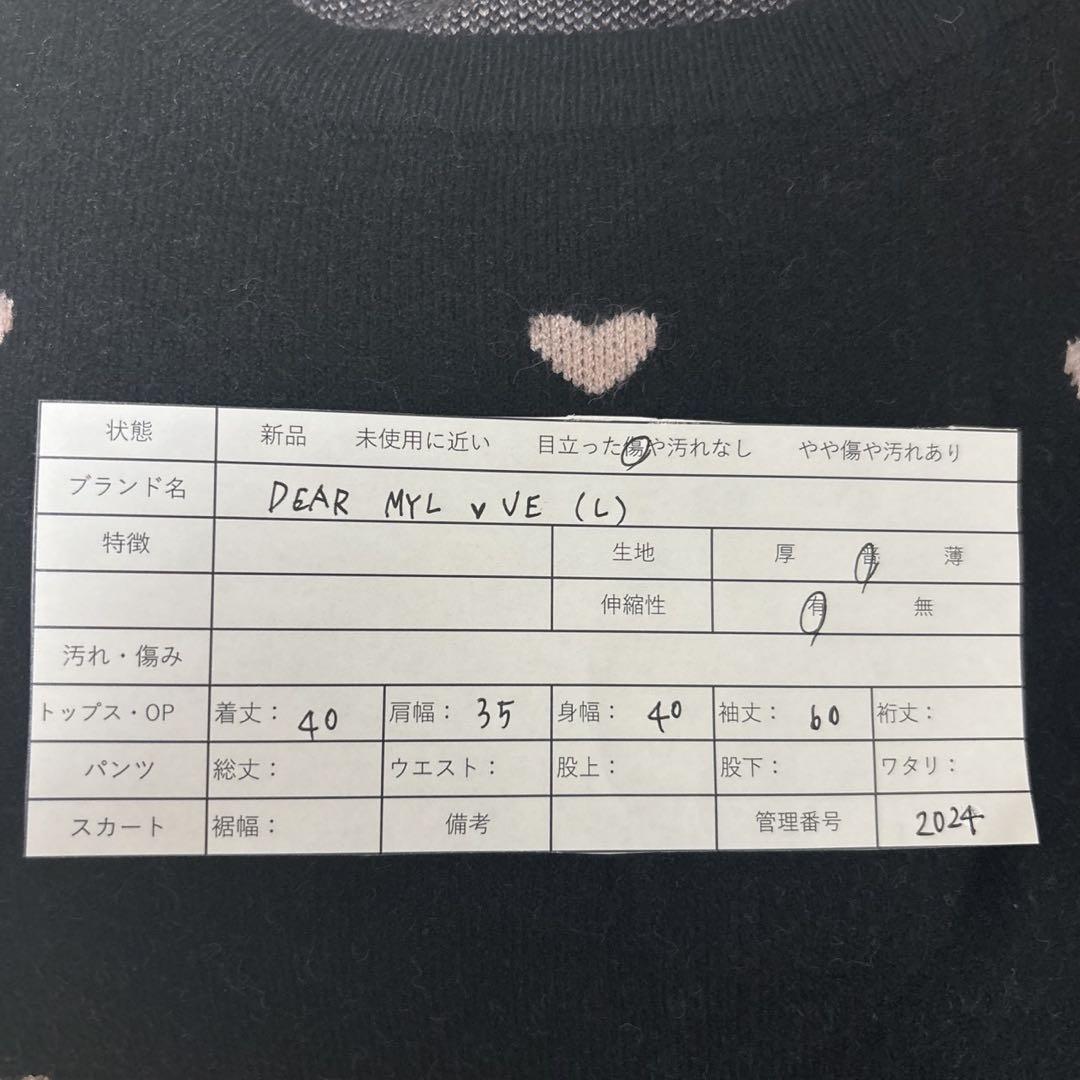 状態 新品 未使用に近い 目立った傷や汚れなし やや傷や汚れあり
ブランド名 DEAR MYL♥VE (L)
特徴 生地 厚 普 薄
伸縮性 有 無
汚れ・傷み
トップス・OP 着丈: 40 肩幅: 35 身幅: 40 袖丈: 60 裄丈:
パンツ 総丈: ウエスト: 股上: 股下: ワタリ:
スカート 裾幅: 備考 管理番号 2024